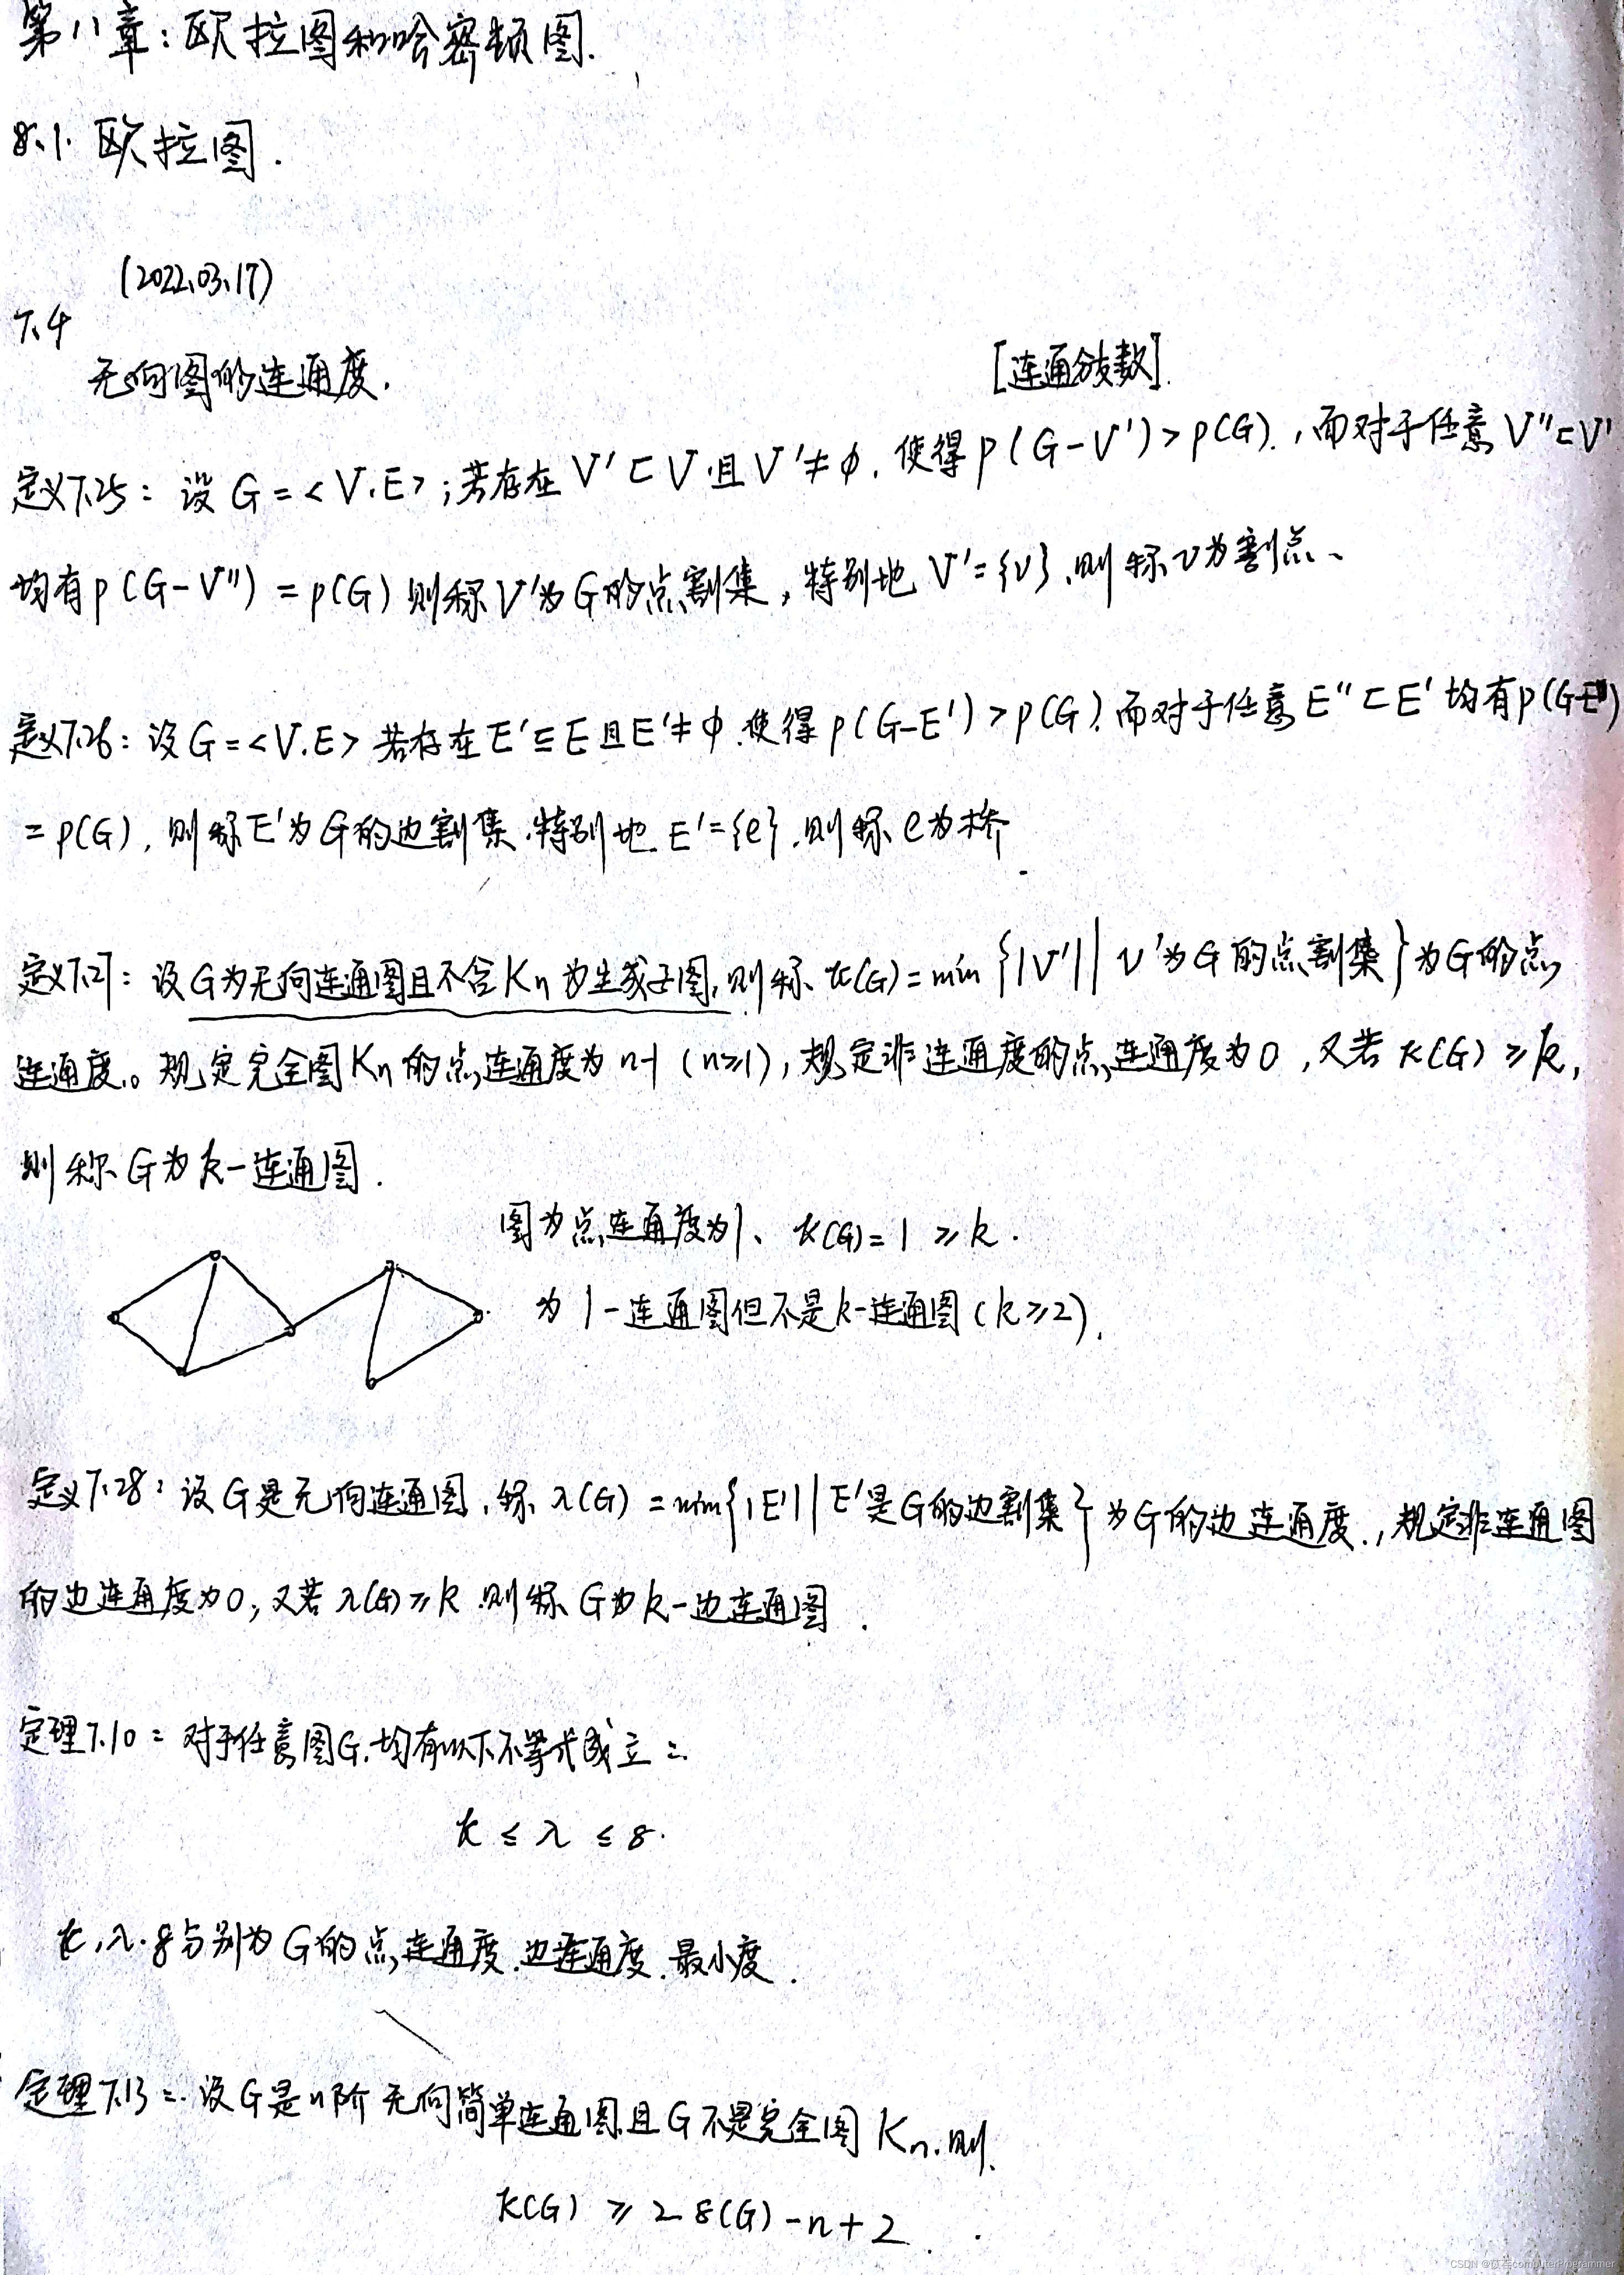 第八章:欧拉图和哈密顿图.
8.1. 欧拉图.
(2022.03.17)
7.4
无向图的连通度.
[连通分支数].
定义7.25: 设 G=<V.E>;若存在 V'⊂V 且 V'≠φ. 使得 p(G-V')>p(G).,而对于任意 V''⊂V'
均有 p(G-V'')=p(G) 则称V'为G的点割集,特别地 V'={v}.则称v为割点、
定义7.26: 设 G=<V.E> 若存在 E'⊆E 且 E'≠φ.使得 p(G-E')>p(G).而对于任意 E''⊂E' 均有p(G-E'')
=p(G),则称E'为G的边割集.特别地.E'={e}.则称e为桥
定义7.27: 设G为无向连通图且不含Kn为生成子图,则称κ(G)=min{|V'|| V'为G的点割集}为G的点
连通度。规定完全图Kn的点连通度为n-1 (n≥1),规定非连通度的点连通度为0,又若κ(G)≥k,
则称G为k-连通图.
图为点连通度为1、κ(G)=1≥k.
为1-连通图但不是k-连通图(k≥2).
定义7.28: 设G是无向连通图.称λ(G)=min{|E'||E'是G的边割集}为G的边连通度.,规定非连通图
的边连通度为0;又若λ(G)≥k.则称G为k-边连通图.
定理7.10: 对于任意图G.均有以下不等式成立:
κ≤λ≤δ.
κ,λ.δ分别为G的点连通度.边连通度.最小度.
定理7.13: 设G是n阶无向简单连通图且G不是完全图Kn.则.
κ(G)≥2δ(G)-n+2.